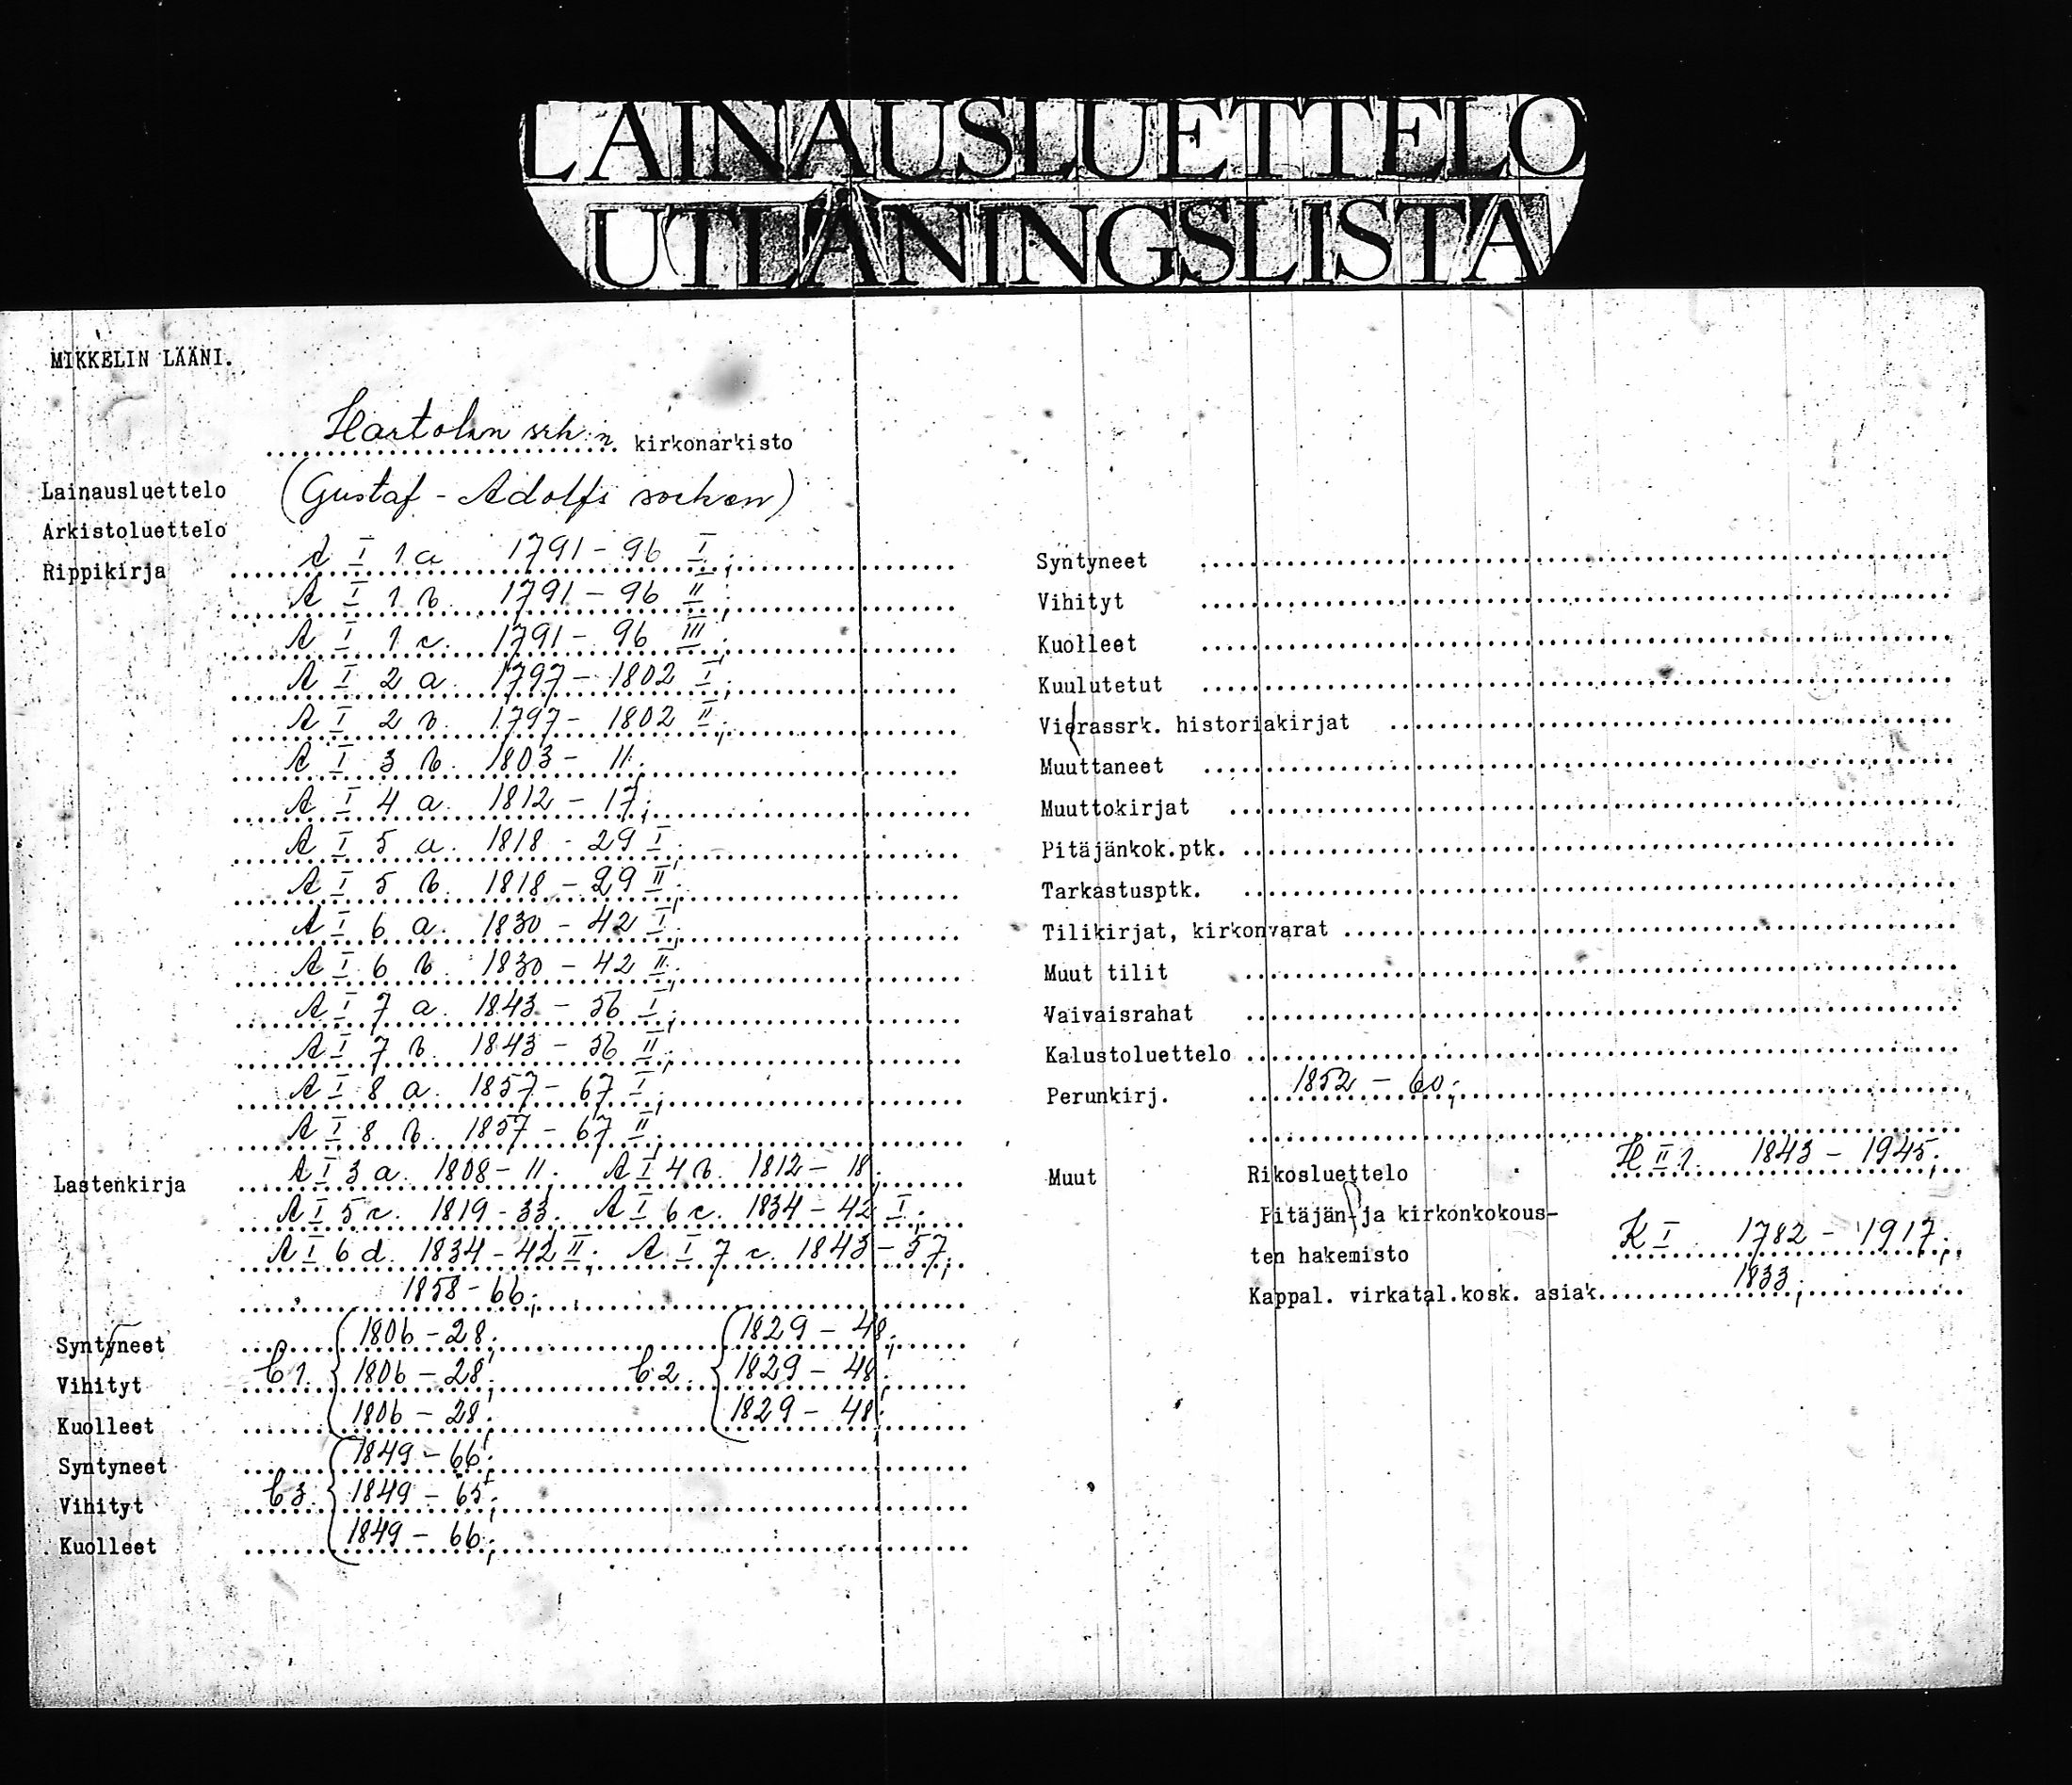 LAINAUSLUETTELO
UTLÅNINGSLISTA
MIKKELIN LÄÄNI.
Hartolan srk:n kirkonarkisto
Lainausluettelo (Gustaf - Adolfs socken)
Arkistoluettelo
Rippikirja A I 1 a 1791 - 96 I;
A I 1 b. 1791 - 96 II;
A I 1 c. 1791 - 96 III;
A I 2 a. 1797 - 1802 I;
A I 2 b. 1797 - 1802 II;
A I 3 b. 1803 - 11;
A I 4 a. 1812 - 17;
A I 5 a. 1818 - 29 I;
A I 5 b. 1818 - 29 II;
A I 6 a. 1830 - 42 I;
A I 6 b. 1830 - 42 II;
A I 7 a. 1843 - 56 I;
A I 7 b. 1843 - 56 II;
A I 8 a. 1857 - 67 I;
A I 8 b. 1857 - 67 II;
Lastenkirja A I 3 a. 1808 - 11; A I 4 b. 1812 - 18;
A I 5 c. 1819 - 33; A I 6 c. 1834 - 42 I;
A I 6 d. 1834 - 42 II; A I 7 c. 1843 - 57;
1858 - 66;
Syntyneet 1806 - 28; 1829 - 48;
Vihityt C 1. 1806 - 28; C 2. 1829 - 48;
Kuolleet 1806 - 28; 1829 - 48;
Syntyneet 1849 - 66;
Vihityt C 3. 1849 - 65;
Kuolleet 1849 - 66;
Syntyneet
Vihityt
Kuolleet
Kuulutetut
Vierassrk. historiakirjat
Muuttaneet
Muuttokirjat
Pitäjänkok.ptk.
Tarkastusptk.
Tilikirjat, kirkonvarat
Muut tilit
Vaivaisrahat
Kalustoluettelo
Perunkirj. 1852 - 60;
Muut Rikosluettelo H II 1. 1843 - 1945;
Pitäjän- ja kirkonkokous-
ten hakemisto K I 1782 - 1917;
Kappal. virkatal.kosk. asiak. 1833;